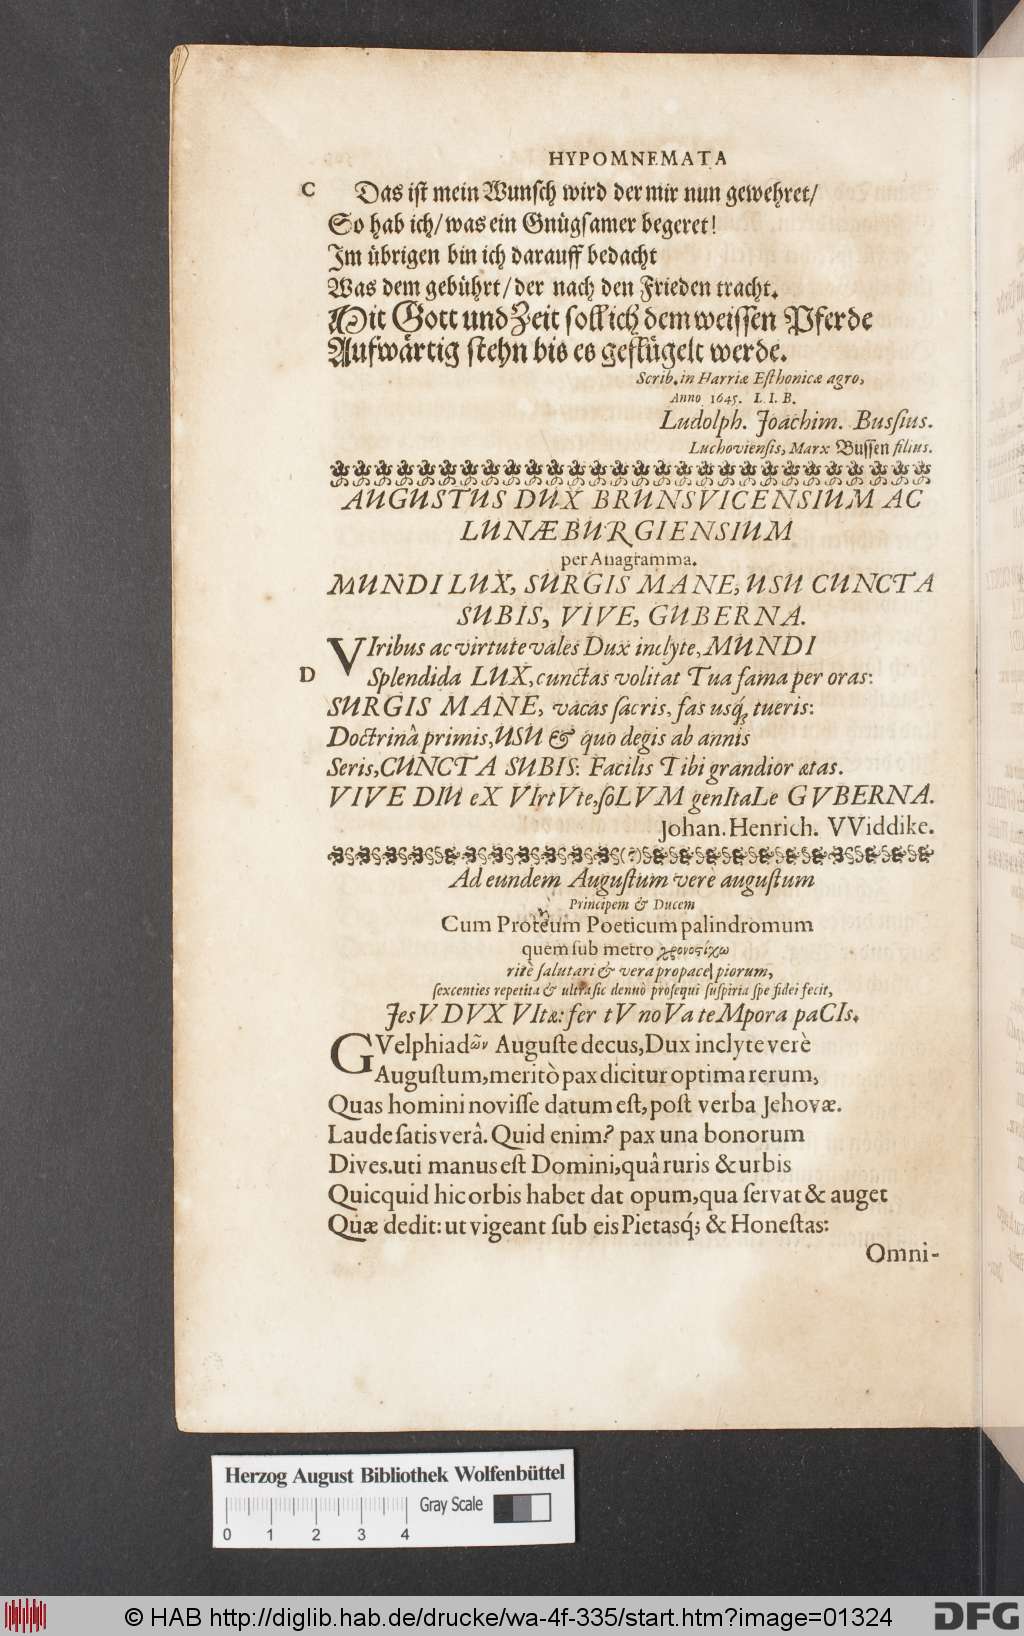 HYPOMNEMATA
C Das ist mein Wunsch wird der mir nun gewehret/
So hab ich/ was ein Gnügsamer begeret!
Im übrigen bin ich darauff bedacht
Was dem gebührt/ der nach den Frieden tracht.
Mit Gott und Zeit soll ich dem weissen Pferde
Aufwärtig stehn bis es geflügelt werde.
Scrib. in Harriæ Eſthonicæ agro,
Anno 1645. L. I. B.
Ludolph. Joachim. Busſius.
Luchovienſis, Marx Bussen filius.
AUGUSTUS DUX BRUNSVICENSIUM AC
LUNÆBURGIENSIUM
per Anagramma.
MUNDI LUX, SURGIS MANE, USU CUNCTA
SUBIS, VIVE, GUBERNA.
VIribus ac virtute vales Dux inclyte, MUNDI
D Splendida LUX, cunctas volitat Tua fama per oras:
SURGIS MANE, vacas ſacris, fas usq́; tueris:
Doctrinâ primis, USU & quo degis ab annis
Seris, CUNCTA SUBIS: Facilis Tibi grandior ætas.
VIVE DIU eX VIrtVte, ſoLVM genItaLe GVBERNA.
Johan. Henrich. VViddike.
Ad eundem Auguſtum verè auguſtum
Principem & Ducem
Cum Proteum Poeticum palindromum
quem ſub metro χρονοϛίχω
ritè ſalutari & vera pro pace piorum,
ſexcenties repetita & ultra ſic denuò proſequi ſuſpiria ſpe fidei fecit,
JesV DVX VItæ: fer tV noVa teMpora paCIs.
GVelphiadῶν Auguſte decus, Dux inclyte verè
Auguſtum, meritò pax dicitur optima rerum,
Quas homini noviſſe datum eſt, poſt verba Jehovæ.
Laude ſatis verâ. Quid enim? pax una bonorum
Dives. uti manus eſt Domini, quâ ruris & urbis
Quicquid hic orbis habet dat opum, qua ſervat & auget
Quæ dedit: ut vigeant ſub eis Pietasq́; & Honeſtas:
Omni-
Herzog August Bibliothek Wolfenbüttel
Gray Scale
0 1 2 3 4
© HAB http://diglib.hab.de/drucke/wa-4f-335/start.htm?image=01324
DFG